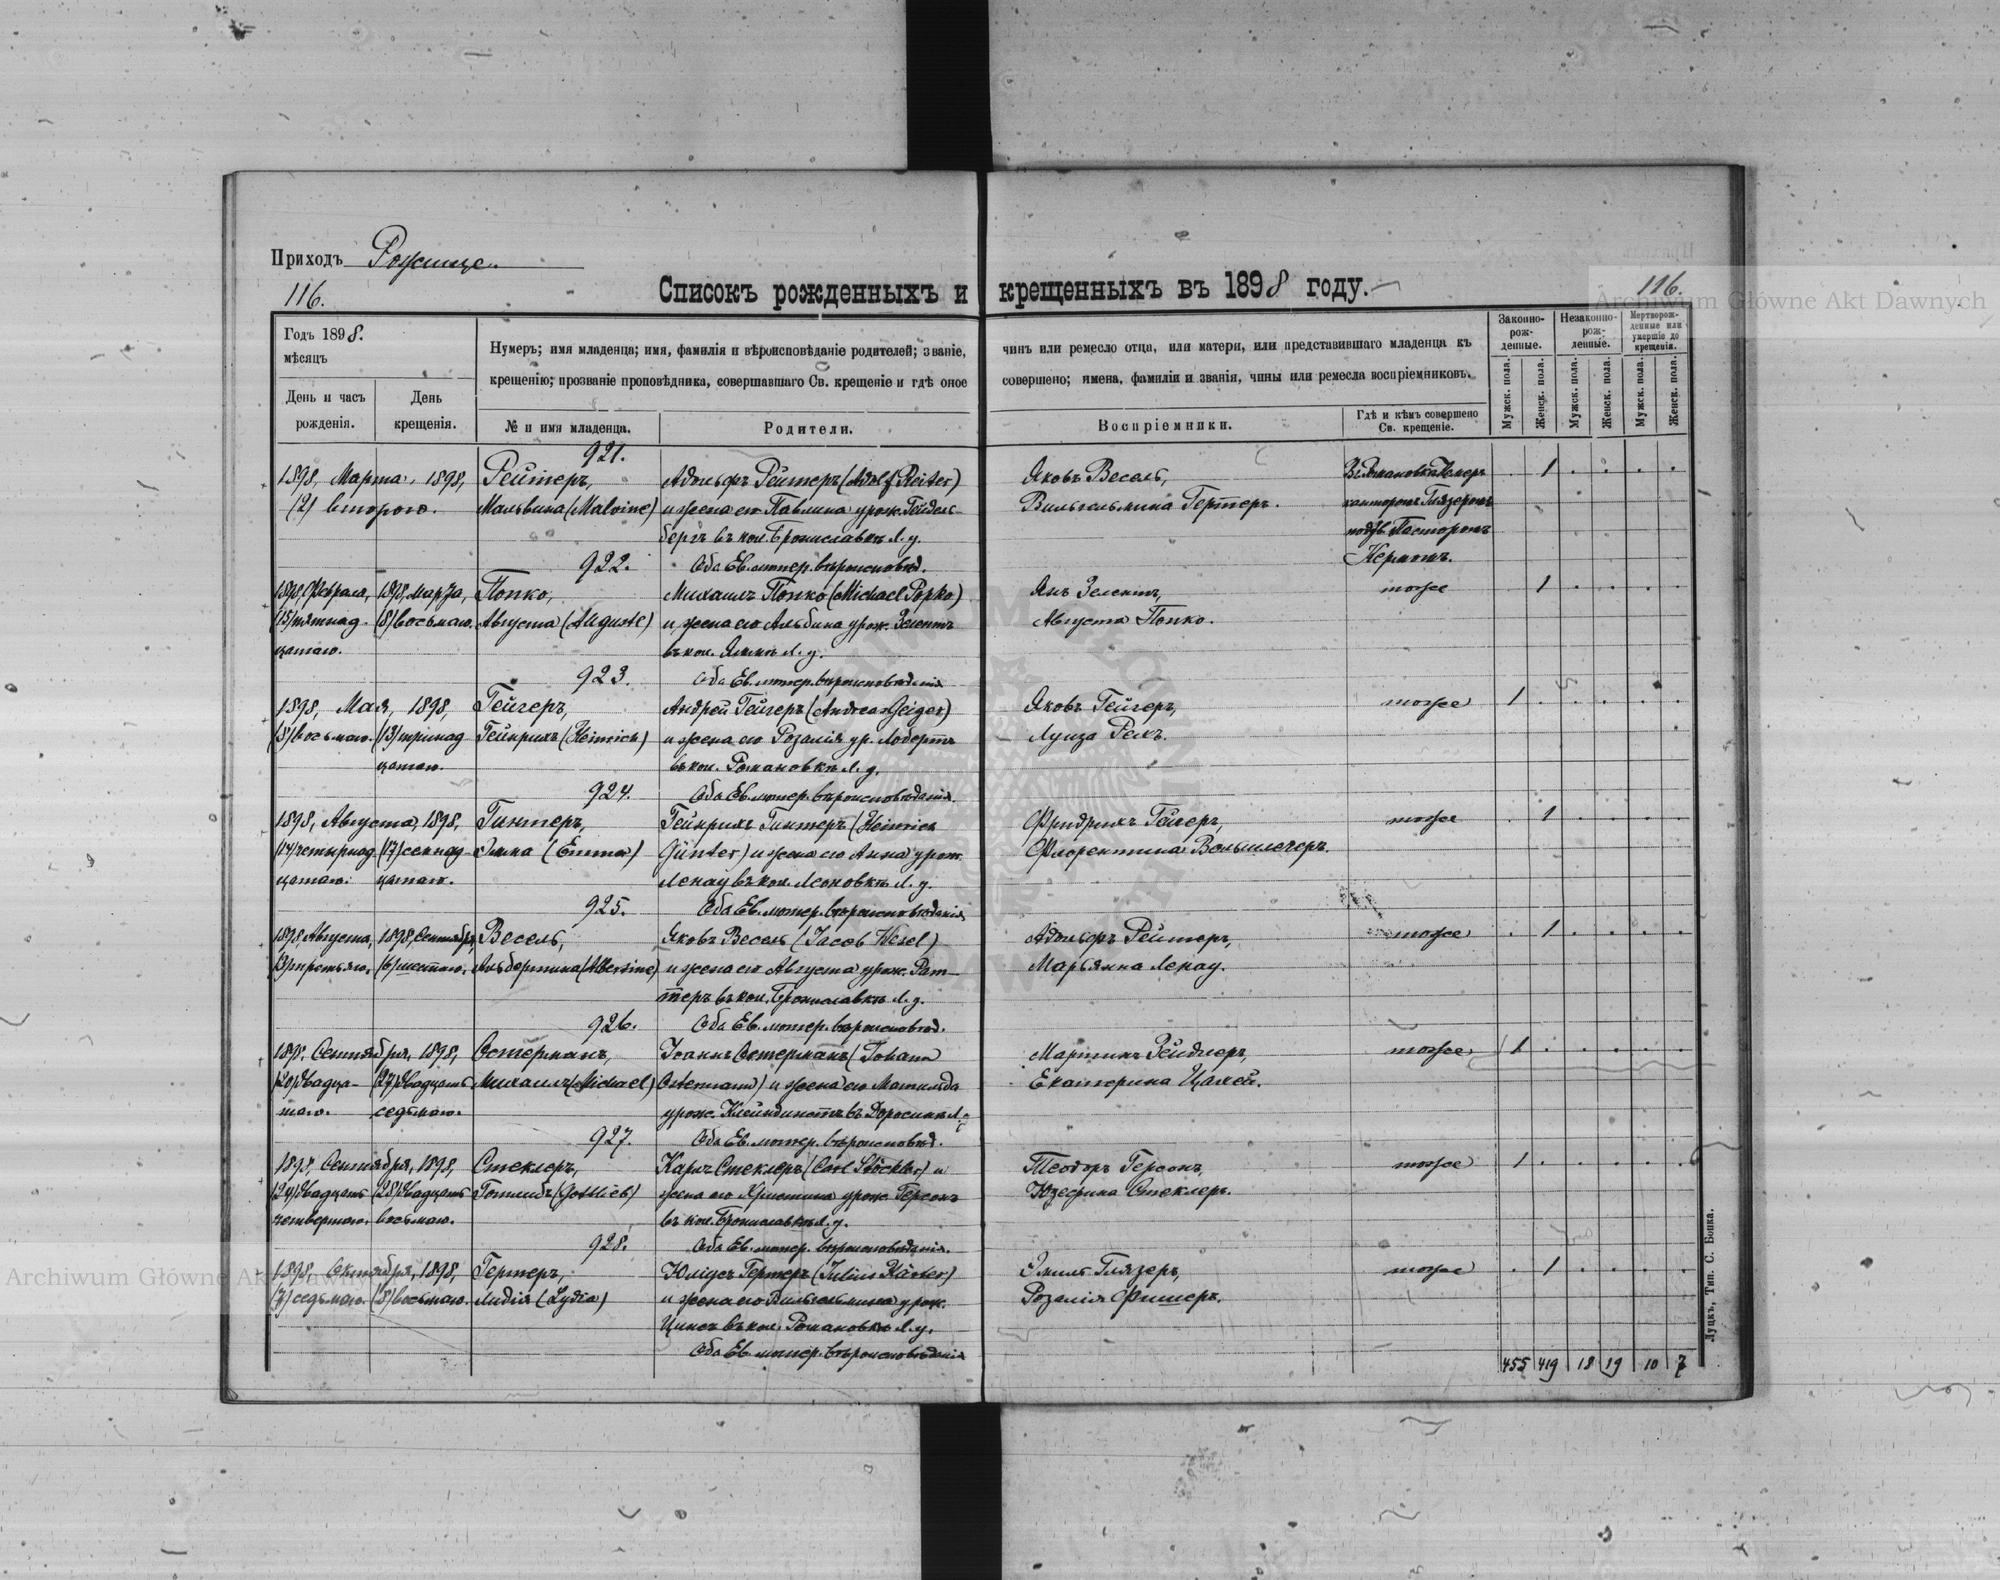 Приходъ Рожище.
116.
Списокъ рожденныхъ и крещенныхъ въ 1898 году.
116.
Archiwum Główne Akt Dawnych
Годъ 1898.
мѣсяцъ
День и часъ рожденія.
День крещенія.
Нумеръ; имя младенца; имя, фамилія и вѣроисповѣданіе родителей; званіе, чинъ или ремесло отца, или матери, или представившаго младенца къ
крещенію; прозваніе проповѣдника, совершавшаго Св. крещеніе и гдѣ оное совершено; имена, фамиліи и званія, чины или ремесла воспріемниковъ.
№ и имя младенца.
Родители.
Воспріемники.
Гдѣ и кѣмъ совершено Св. крещеніе.
Законно-рож-денные.
Незаконно-рож-денные.
Мертворож-денные или умершіе до крещенія.
Мужск. пола.
Женск. пола.
Мужск. пола.
Женск. пола.
Мужск. пола.
Женск. пола.
921.
1898, Марта, 1898, Рейтеръ, Адольфъ Рейтеръ (Adolf Reiter) Яковъ Весель, 1
(2) второго. Мальвина (Malvine) и жена его Павлина урож. Гейдель Вильгельмина Гертеръ. канторомъ Глязеромъ
бергъ въ кол. Брониславкѣ Л. у. Пасторомъ
922. Оба Ев. лютер. вѣроисповѣд. Кермомъ.
1898, Февраля, 1898, Марта, Попко, Михаилъ Попко (Michael Popko) Янъ Зелентъ, тоже 1
(15) пятнад- (8) восьмого. Августа (Auguste) и жена его Альбина урож. Зелентъ Августа Попко.
цатаго. въ кол. Л. у.
923. Оба Ев. лютер. вѣроисповѣданія
1898, Мая, 1898, Гейгеръ, Андрей Гейгеръ (Andreas Geiger) Яковъ Гейгеръ, тоже 1
восьмого. (13) тринад Гейнрихъ (Heinrich) и жена его Розалія ур. Лобертъ Луиза
цатаго. въ кол. Романовкѣ Л. у.
924. Оба Ев. лютер. вѣроисповѣданія.
1898, Августа, 1898, Гинтеръ, Гейнрихъ Гинтеръ (Heinrich Фридрихъ Гейгеръ, тоже 1
(14) четырнад (17) семнад Эмма (Emma) Günter) и жена его Анна урож. Флорентина
цатаго. цатаго. Ленау въ кол. Леоновкѣ Л. у.
925. Оба Ев. лютер. вѣроисповѣданія
1898, Августа, 1898, Сентября, Весель, Яковъ Весель (Jacob Wesel) Адольфъ Рейтеръ, тоже 1
(3) третьяго, (6) шестого, Альбертина (Albertine) и жена его Августа урож. Рат- Марьянна Ленау.
теръ въ кол. Брониславкѣ Л. у.
926. Оба Ев. лютер. вѣроисповѣд.
1898, Сентября, 1898, Остерманъ, Іоаннъ Остерманъ (Johann Мартинъ Рейдлеръ, тоже 1
(20) двадца- (27) двадцать Михаилъ (Michael) Ostermann) и жена его Матильда Екатерина Цахей.
таго. седьмого. урож. Клейндинстъ въ Доросини Л. у.
927. Оба Ев. лютер. вѣроисповѣд.
1898, Сентября, 1898, Стеклеръ, Карлъ Стеклеръ (Carl Stöckler) и Теодоръ Герсонъ, тоже 1
(24) двадцать (28) двадцать Готлибъ (Gottlieb) жена его Христина урож. Герсонъ Юзефина Стеклеръ.
четвертаго. восьмого. въ кол. Брониславкѣ Л. у.
928. Оба Ев. лютер. вѣроисповѣданія.
1898, Октября, 1898, Гертеръ, Юліусъ Гертеръ (Julius Härter) Эмиль Глязеръ, тоже 1
(7) седьмого. (8) восьмого. Лидія (Lydia) и жена его Вильгельмина урож. Розалія Фишеръ.
Цинсъ въ кол. Романовкѣ Л. у.
Оба Ев. лютер. вѣроисповѣданія
455 419 18 19 10 7
Луцкъ, Тип. С. Бонка.
Archiwum Główne Akt Dawnych